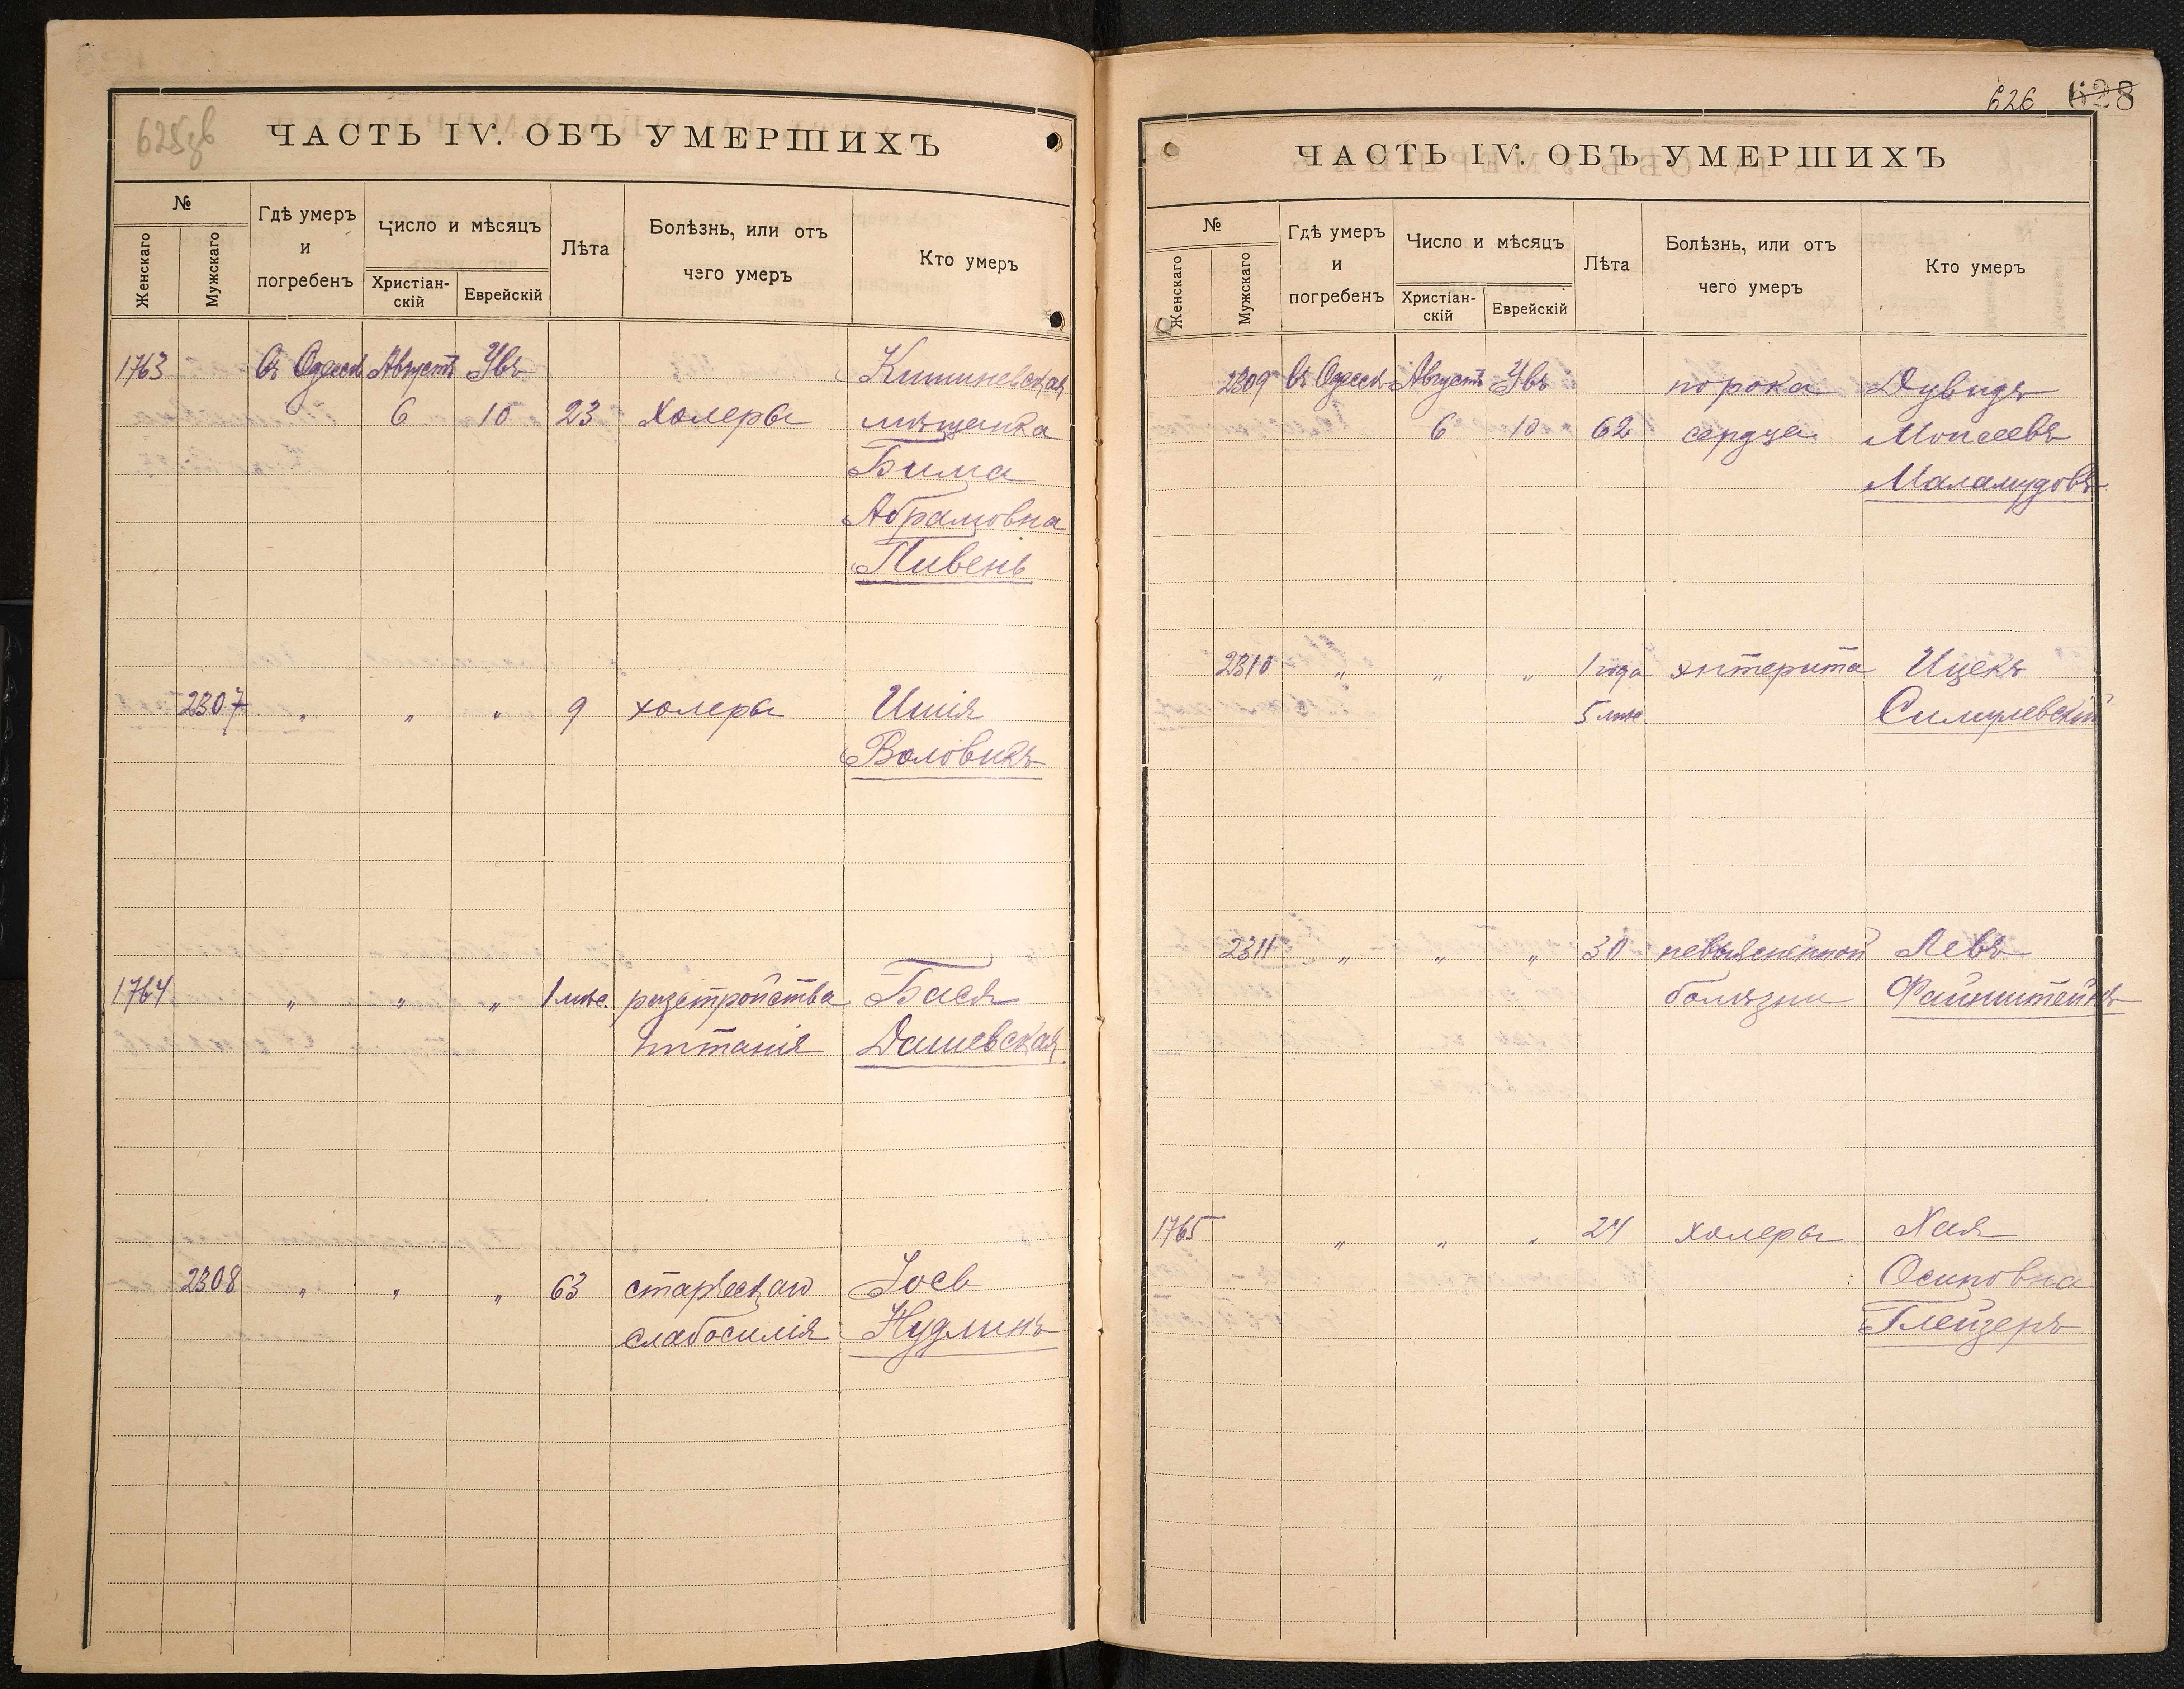 625об
ЧАСТЬ IV. ОБЪ УМЕРШИХЪ
№
Женскаго
Мужскаго
Гдѣ умеръ
и
погребенъ
Число и мѣсяцъ
Христіан-
скій
Еврейскій
Лѣта
Болѣзнь, или отъ
чего умеръ
Кто умеръ
1763 Въ Одессѣ Августъ Увъ Кишиневская
6 10 23 Холеры мѣщанка
Бима
Абрамовна
Пивень
2307 " " " 9 холеры Ишія
Воловикъ
1764 " " " 1 мѣс. разстройства Бася
питанія Дашевская
2308 " " " 63 старческаго Іосъ
слабосилія Нудлинъ
626 628
ЧАСТЬ IV. ОБЪ УМЕРШИХЪ
№
Женскаго
Мужскаго
Гдѣ умеръ
и
погребенъ
Число и мѣсяцъ
Христіан-
скій
Еврейскій
Лѣта
Болѣзнь, или отъ
чего умеръ
Кто умеръ
2309 Въ Одессѣ Августъ Увъ порока Дувидъ
6 10 62 сердца Моисеевъ
Маламудовъ
2310 " " " 1 года энтерита Ицекъ
5 мѣс Симулевскій
2311 " " " 30 невыясненной Левъ
болѣзни Файнштейнъ
1765 " " " 24 холеры Хая
Осиповна
Глейзеръ